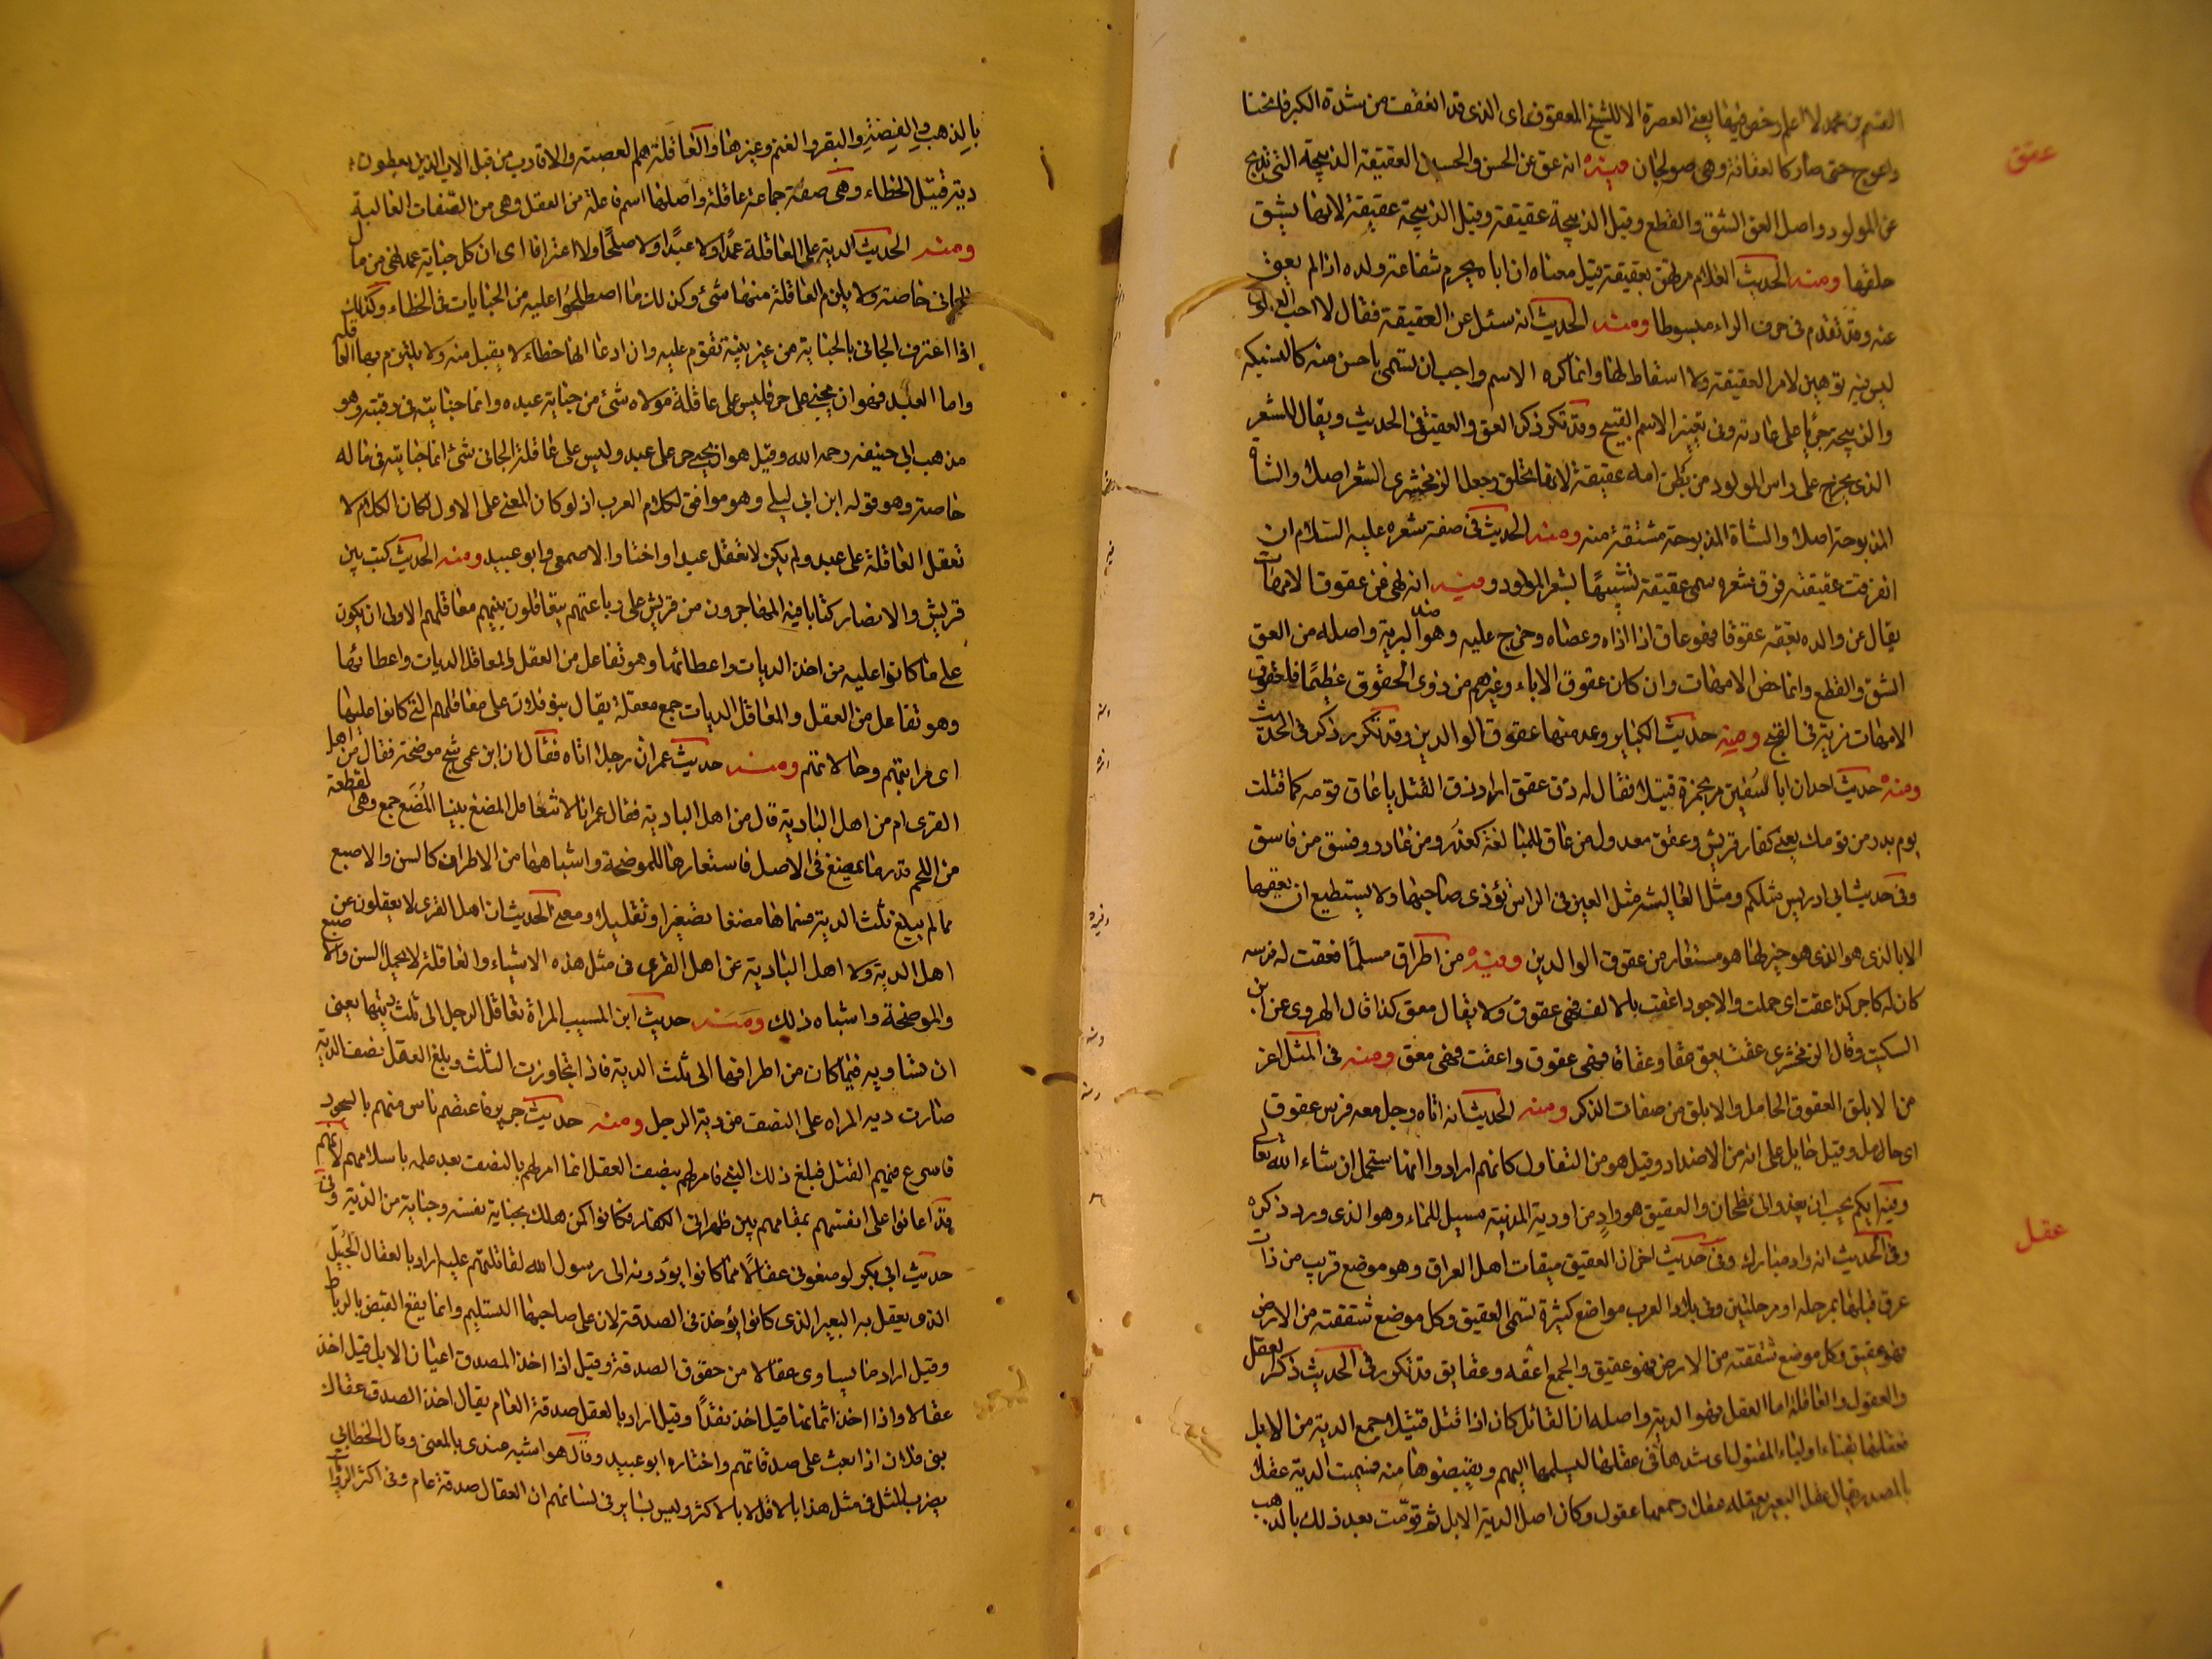 القسم بن محمد لا اعلم رخص فيها يعني العصرة الا للشيخ المعقوف اى الذى قد انعقف من شدة الكبر فانحنا
عقق
واعوج حتى صار كالعقافة وهى صولجان وفيه انه عق عن الحسن والحسين العقيقة الذبيحة التى تذبح
عن المولود واصل العق الشق والقطع وقيل الذبيحة عقيقة وقيل الذبيحة عقيقة لانها يشق
حلقها ومنه الحديث الغلام مرتهن بعقيقة قيل معناه ان اباه يحرم شفاعة ولده اذا لم يعق
عنه وقد تقدم فى حرف الراء مبسوطا ومنه الحديث انه سئل عن العقيقة فقال لا احب العقوق
ليس فيه توهين لامر العقيقة ولا اسقاط لها وانما كره الاسم واحب ان تسمى باحسن منه كالنسيكه
والذبيحة جريا على عادته فى تغيير الاسم القبيح وقد تكرر ذكر العق والعقيقة فى الحديث ويقال للشعر
الذى يخرج على راس المولود من بطن امه عقيقة لانها تحلق وجعل الزمخشرى الشعر اصلا والشاة
المذبوحة اصلا والشاة المذبوحة مشتقة منه ومنه الحديث فى صفة شعره عليه السلام ان
انفرقت عقيقته فرق شعره سمى عقيقة تشبيها بشعر المولود ومنه انه نهى عن عقوق الامهات
يقال عق والده يعقه عقوقا فهو عاق اذا اذاه وعصاه وخرج عليه وهو ضد البرية واصله من العق
الشق والقطع وانما خص الامهات وان كان عقوق الاباء وغيرهم من ذوى الحقوق عظيما فلعقوق
الامهات مزية فى القبح ومنه حديث الكبائر وعد منها عقوق الوالدين وقد تكرر ذكره فى الحديث
ومنه حديث احد ان ابا سفين مر بحمزة قتيلا فقال له ذق عقق اراد ذق القتل يا عاق قومه كما قتلت
يوم بدر من قومك يعنى كفار قريش وعقق معدول من عاق للمبالغة كغدر من غادر وفسق من فاسق
وفى حديث ابى ادريس مثلكم ومثل عايشه مثل العين فى الراس تؤذى صاحبها ولا يستطيع ان يعقها
الا بالذى هو الذى هو خير لها هو مستعار من عقوق الوالدين وفيه من اطرق مسلما فعقت له فرسه
كان له كاجر كذا عقت اى حملت والاجود اعقت بالالف فهى عقوق ولا يقال معق كذا قال الهروى عن ابن
السكيت وقال الزمخشرى عقت تعق عققا وعقاقا فهى عقوق واعقت فهى معق ومنه فى المثل اعز
من الابلق العقوق الحامل والابلق من صفات الذكر ومنه الحديث انه اتاه رجل معه فرس عقوق
اى حامل وقيل حايل على انه من الاضداد وقيل هو من التفاول كانهم ارادوا انها ستحمل ان شاء الله تعالى
وفيه ايكم يحب ان يغدو الى بطحان والعقيق هو واد من اودية المدينة مسيل للماء وهو الذى ورد ذكره
عقل
وفى الحديث انه واد مبارك وفى حديث اخر ان العقيق ميقات اهل العراق وهو موضع قريب من ذات
عرق قبلها بمرحلة او مرحلتين وفى بلاد العرب مواضع كثيرة تسمى العقيق وكل موضع شققته من الارض
فهو عقيق وكل موضع شققته من الارض فهو عقيق والجمع اعقه وعقايق قد تكرر فى الحديث ذكر العقل
والعقول والعاقلة اما العقل فهو الدية واصله ان القاتل كان اذا قتل قتيلا جمع الدية من الابل
فعقلها بفناء اولياء المقتول اى شدها فى عقلها ليسلمها اليهم ويقبضوها منه فسميت الدية عقلا
بالمصدر يقال عقل البعير يعقله عقلا وجمعها عقول وكان اصل الدية الابل ثم قومت بعد ذلك بالذهب
بالذهب والفضة والبقر والغنم وغيرها والعاقلة هم العصبة والاقارب من قبل الاب الذين يعطون
دية قتيل الخطاء وهى صفة جماعة عاقلة واصلها اسم فاعلة من العقل وهى من الصفات الغالبة
ومنه الحديث الدية على العاقلة عمدا ولا عبدا ولا صلحا ولا اعترافا اى ان كل جناية عمد فهى من مال
الجانى خاصة ولا يلزم العاقلة منها شئ وكذلك ما اصطلحوا عليه من الجنايات فى الخطاء وكذلك
اذا اعترف الجانى بالجناية من غير بينة تقوم عليه وان ادعا انها خطاء لا يقبل منه ولا يلزم بها العاقله
واما العبد فهو ان يجنى على حر فليس على عاقلة مولاه شئ من جناية عبده وانما جنايته فى رقبته وهو
مذهب ابى حنيفه رحمه الله وقيل هو ان يجنى حر على عبد وليس على عاقلة الجانى شئ انما جنايته فى ماله
خاصة وهو قوله ابن ابى ليلى وهو موافق لكلام العرب اذ لو كان المعنى على الاول لكان الكلام لا
تعقل العاقلة على عبد ولم يكن لا تعقل عبدا واختا والاصمعى وابو عبيد ومنه الحديث كتب بين
قريش والانصار كتابا فيه المهاجرون من قريش على رباعتهم يتعاقلون بينهم معاقلهم الاولى ان يكون
على ما كانوا عليه من اخذ الديات واعطائها وهو تفاعل من العقل والمعاقل الديات واعطائها
وهو تفاعل من العقل والمعاقل الديات جمع معقلة يقال بنو فلان على معاقلهم التى كانوا عليها
اى مراتبهم وحالاتهم ومنه حديث عمران رجلا اتاه فقال ان ابن عمى شج موضحة فقال من اهل
القرى ام من اهل البادية قال من اهل البادية فقال عمر انا لا نتعاقل المضغ بيننا المضغ جمع وهى لقطعة
من اللحم قدر ما يمضغ فى الاصل فاستعارها للموضحة واشباهها من الاطراف كالسن والاصبع
مما لم يبلغ ثلث الدية فسماها مضغا تصغيرا وتقليلا ومعنى الحديث ان اهل القرى لا يعقلون عن
اهل الدية ولا اهل البادية عن اهل القرى فى مثل هذه الاشياء والعاقلة لا تحمل السن والاصبع
والموضحة واشباه ذلك ومنه حديث ابن المسيب المراة تعاقل الرجل الى ثلث ديتها يعنى
ان تساويه فيما كان من اطرافها الى ثلث الدية فاذا تجاوزت الثلث وبلغ العقل نصف الدية
صارت ديه المراه على النصف من دية الرجل ومنه حديث جرير فاعتصم ناس منهم بالسجود
فاسرع فيهم القتل فبلغ ذلك النبى فامر لهم بنصف العقل انما امر لهم بالنصف بعد علمه باسلامهم لانهم
قد اعانوا على انفسهم بمقامهم بين ظهرانى الكفار فكانوا كمن هلك بجناية نفسه وجناية من الدية وفى
حديث ابى بكر لو منعونى عقالا مما كانوا يؤدونه الى رسول الله لقاتلتهم عليه اراد بالعقال الحبل
الذى يعقل به البعير الذى كانوا يؤخذ فى الصدقة لان على صاحبها التسليم وانما يقع القبض بالرباط
وقيل اراد ما يساوى عقالا من حقوق الصدقة وقيل اذا اخذ المصدق اعيان الابل قيل اخذ
عقالا واذا اخذ اثمانها قيل اخذ نقدا وقيل اراد بالعقل صدقة العام يقال اخذ الصدق عقال
بنى فلان اذا بعث على صدقاتهم واختاره ابو عبيد وقال هو اشبه عندى بالمعنى وقال الخطابى
يضرب المثل فى مثل هذا بالاقل لا بالاكثر وليس بساير فى لسانهم ان العقال صدقة عام وفى اكثر الروات